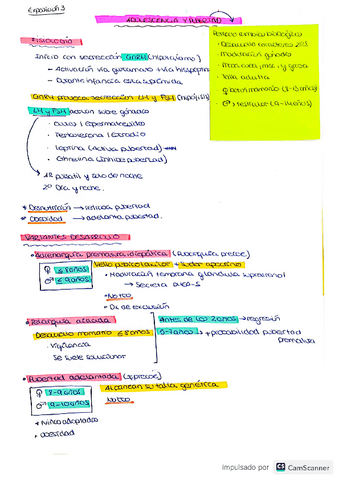 Exposición 3
ADOLESCENCIA Y PUBERTAD
FISIOLOGÍA
Inicio con secreción GnRH (hipotálamo)
- Activación vía glutamato + vía kisspeptina
- Durante infancia está suprimida
GnRH provoca secreción LH y FSH (hipófisis)
LH y FSH actúan sobre gónadas
· Óvulos / Espermatozoides
· Testosterona / Estradiol
· Leptina (Activa pubertad)
(inhibe pubertad)
1º pulsátil y solo de noche
2º Día y noche
* Desnutrición → retrasa pubertad
* Obesidad → adelanta pubertad
Periodo cambio biológico
· Desarrollo caracteres 2os
· Maduración gónadas
· masc. y grasa
· Talla adulta
♀ (8-13 años)
♂ testículos (9-14 años)
VARIANTES DESARROLLO
· Adrenarquia prematura idiopática
Vello pubico/axilar + sudor apocrino
♀ ≤8 años
♂ ≤9 años
· Maduración temprana glándula suprarrenal
→ Secreta DHEA-S
· No tto
· Dx de exclusión
· Telarquia aislada
Desarrollo mamario ≤8 años
· Vigilancia
· Se suele solucionar
Antes de los 2 años → regresión
6-7 años → + probabilidad pubertad
prematura
· Pubertad adelantada
Alcanzan su talla genética
♀ 8-9 años
♂ 9-10 años
No tto
* Niños adoptados
* Obesidad
Impulsado por CS CamScanner